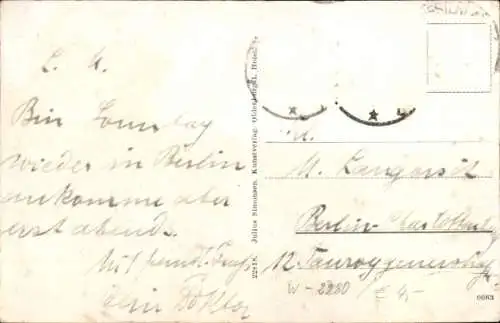 L. M.
Bin Sonntag
wieder in Berlin
ankomme aber
erst abends.
Mit freundl. Gruß
Dein
22818. Julius Simonsen, Kunstverlag, Oldenburg i. Holst.
M.
Berlin-Charlottenbg
12. Tauroggenerstr.
W-2220 / € 4,-
0063